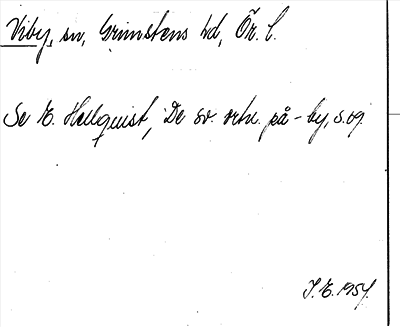 Viby, sn, Grimstens hd, Ör. l.
Se E. Hellquist, De sv. ortn. på -by, s. 09.
I. E. 1954.